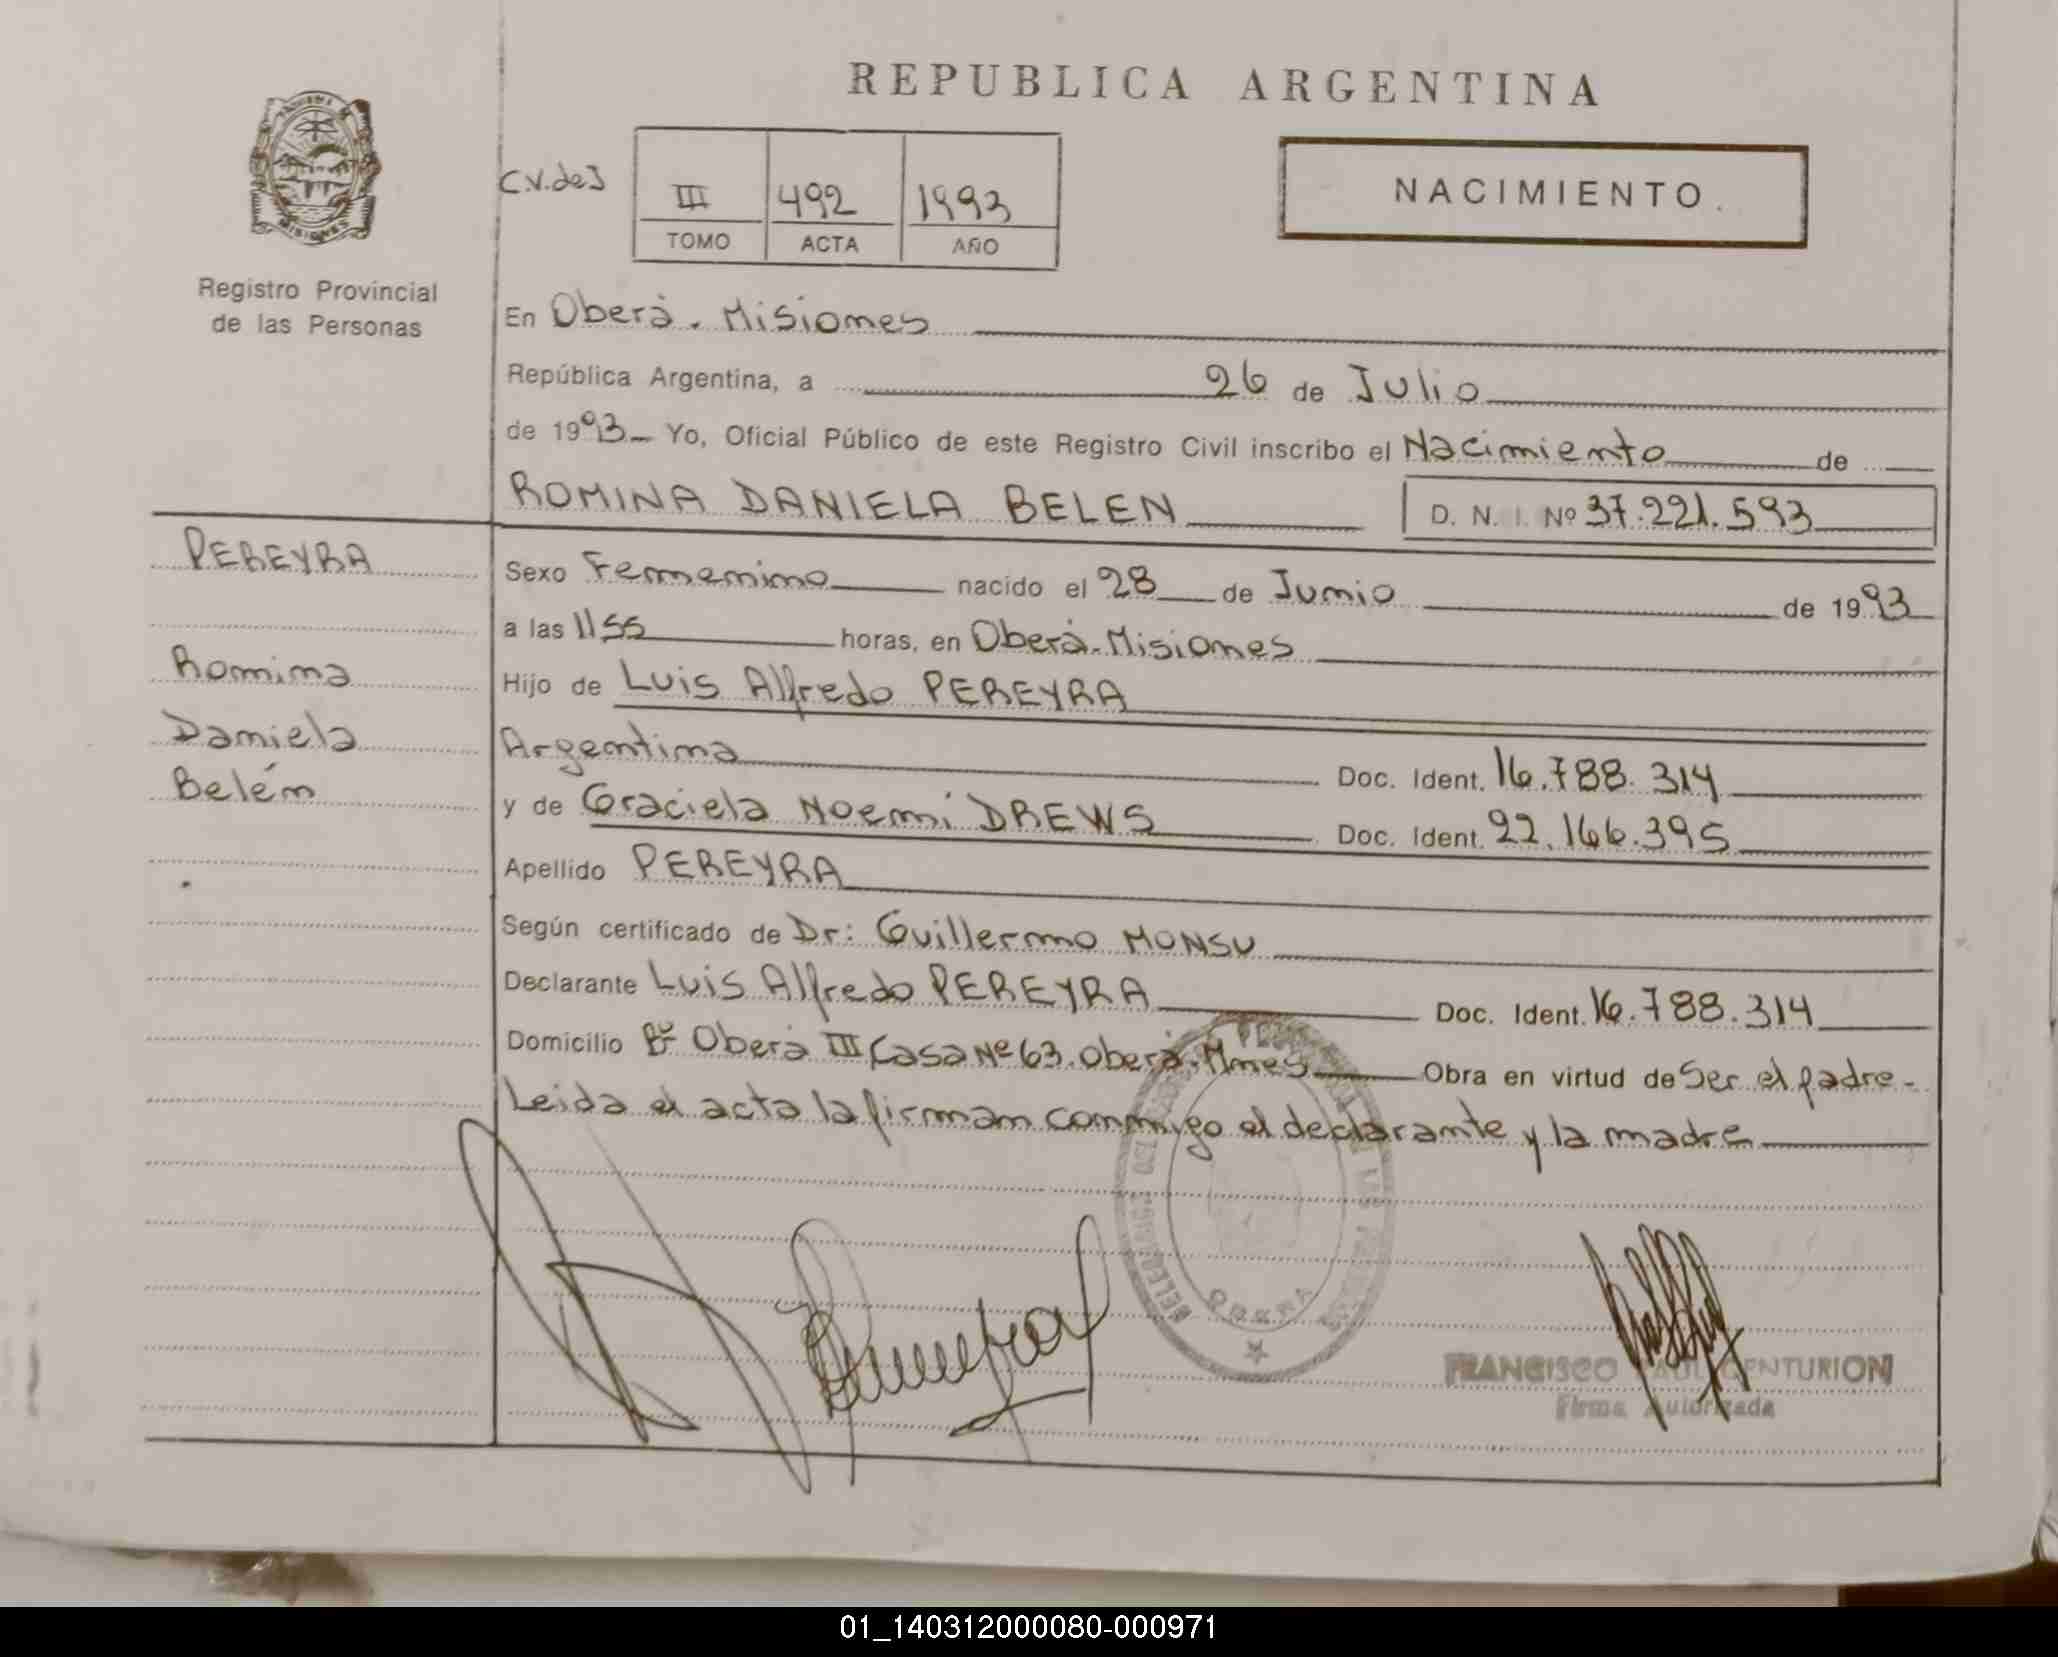 REPUBLICA ARGENTINA
MISIONES
C.V.deJ
III 492 1993
TOMO ACTA AÑO
NACIMIENTO.
Registro Provincial
de las Personas
En Oberà. Misiones
República Argentina, a 26 de Julio
de 1993 Yo, Oficial Público de este Registro Civil inscribo el Nacimiento de
ROMINA DANIELA BELEN D. N. I. Nº 37.221.593
PEREYRA
Romina
Daniela
Belén
Sexo Femenino nacido el 28 de Junio de 1993
a las 1155 horas, en Oberà-Misiones
Hijo de Luis Alfredo PEREYRA
Argentina Doc. Ident. 16.788.314
y de Graciela Noemi DREWS Doc. Ident. 22.166.395
Apellido PEREYRA
Según certificado de Dr: Guillermo MONSU
Declarante Luis Alfredo PEREYRA Doc. Ident. 16.788.314
Domicilio Bº Oberà III Casa Nº 63. Oberà. Mnes Obra en virtud de Ser el padre-
Leida el acta la firman conmigo el declarante y la madre
OBERA
FRANCISCO CENTURION
Firma Autorizada
01_140312000080-000971